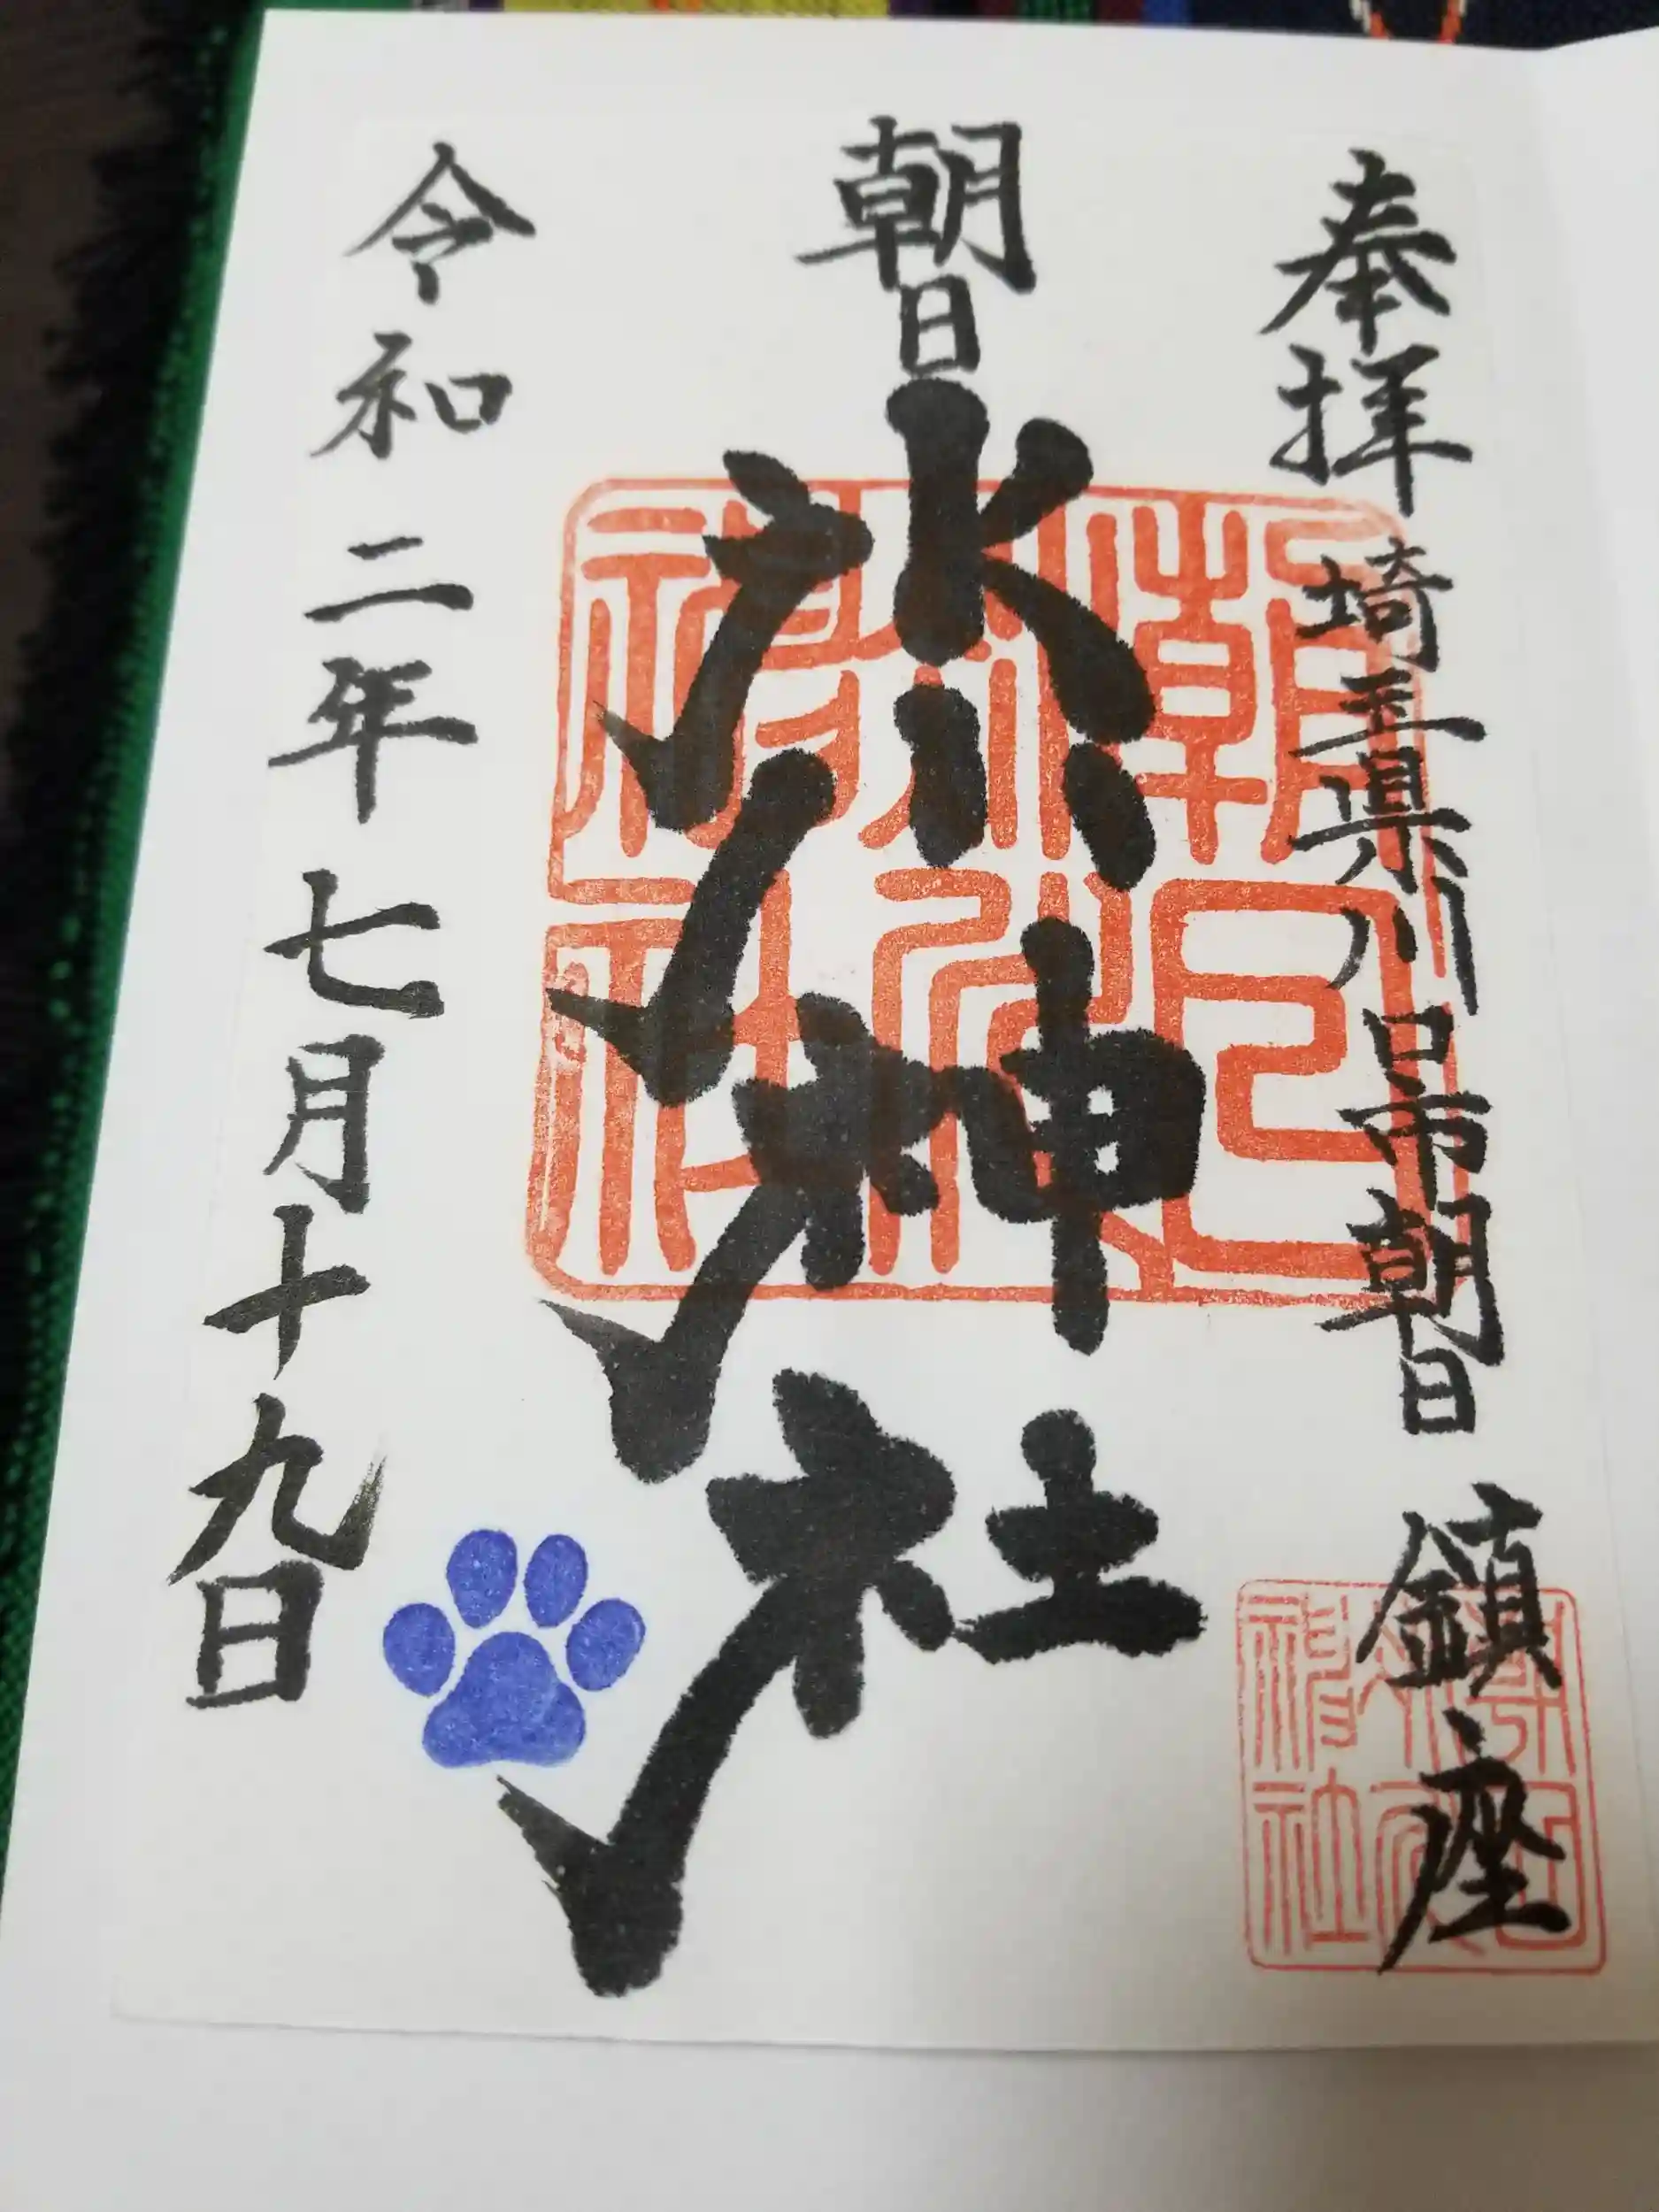 奉拝 埼玉県川口市朝日 鎮座
朝日氷川神社
令和二年七月十九日
朝日氷川神社